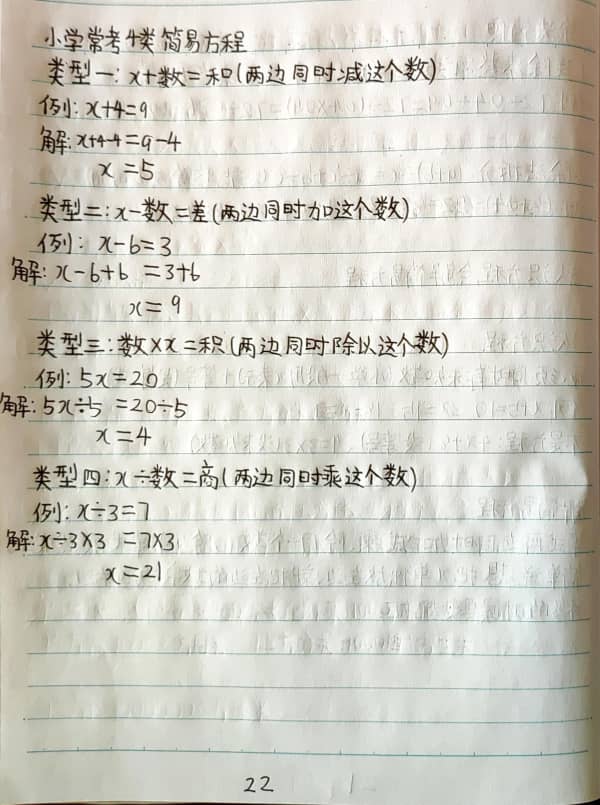 小学常考4类简易方程
类型一:x+数=和(两边同时减这个数)
例:x+4=9
解:x+4-4=9-4
x=5
类型二:x-数=差(两边同时加这个数)
例:x-6=3
解:x-6+6=3+6
x=9
类型三:数×x=积(两边同时除以这个数)
例:5x=20
解:5x÷5=20÷5
x=4
类型四:x÷数=商(两边同时乘这个数)
例:x÷3=7
解:x÷3×3=7×3
x=21
22